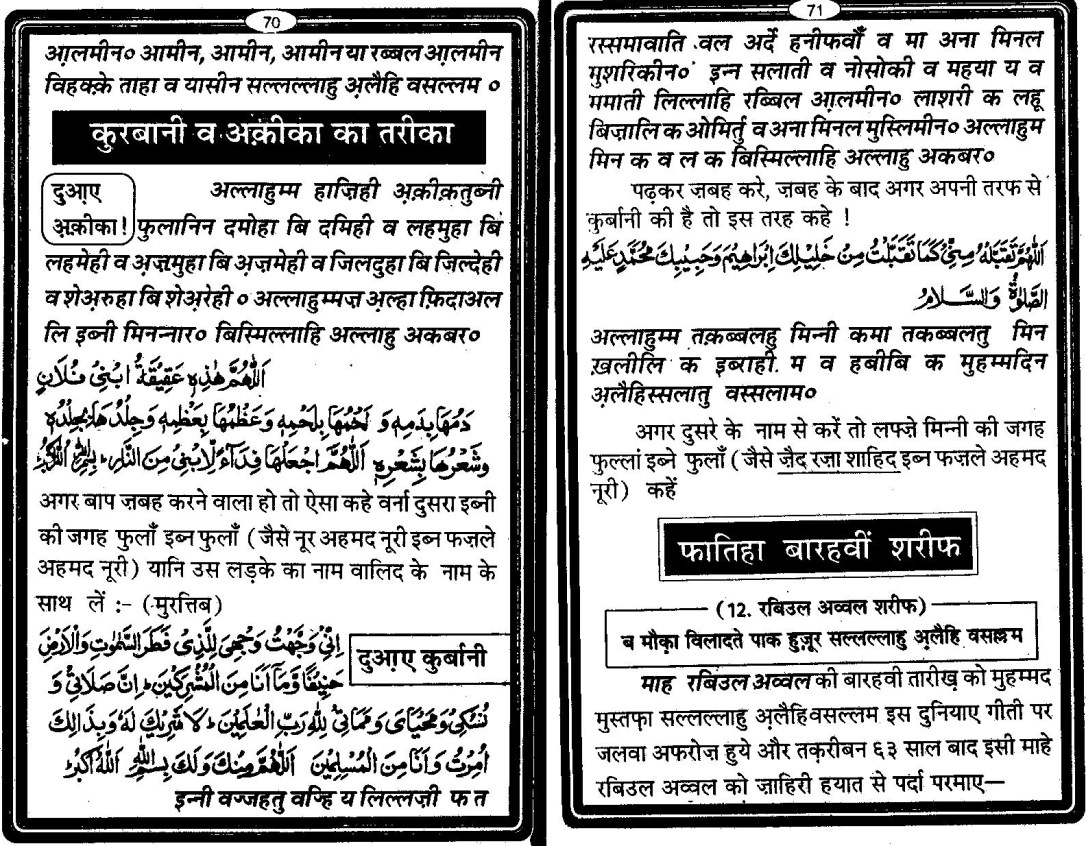 70
आ़लमीन० आमीन, आमीन, आमीन या रब्बल आ़लमीन
विहक़्के ताहा व यासीन सल्लल्लाहु अ़लैहि वसल्लम ०
कुरबानी व अक़ीका का तरीका
दुआए
अ़क़ीका!
अल्लाहुम्म हाज़िही अ़क़ीक़तुब्नी
फुलानिन दमोहा बि दमिही व लहमुहा बि
लहमेही व अज़मुहा बि अज़मेही व जिलदुहा बि जिल्देही
व शेअ़रुहा बि शेअ़रेही ० अल्लाहुम्मज़ अ़ल्हा फ़िदाअल
लि इब्नी मिनन्नार० बिस्मिल्लाहि अल्लाहु अकबर०
اَللّٰهُمَّ هٰذِهٖ عَقِيْقَةُ ابْنِىْ فُلَانٍ
دَمُهَا بِدَمِهٖ وَ لَحْمُهَا بِلَحْمِهٖ وَ عَظْمُهَا بِعَظْمِهٖ وَ جِلْدُهَا بِجِلْدِهٖ
وَ شَعْرُهَا بِشَعْرِهٖ اَللّٰهُمَّ اجْعَلْهَا فِدَآءً لِّابْنِىْ مِنَ النَّارِ ؕ بِسْمِ اللّٰهِ اَللّٰهُ اَكْبَرُ
अगर बाप ज़बह करने वाला हो तो ऐसा कहे वर्ना दुसरा इब्नी
की जगह फुलाँ इब्न फुलाँ (जैसे नूर अहमद नूरी इब्न फज़ले
अहमद नूरी) यानि उस लड़के का नाम वालिद के नाम के
साथ लें :- (मुरत्तिब)
दुआए कुर्बानी
اِنِّىْ وَجَّهْتُ وَجْهِىَ لِلَّذِىْ فَطَرَ السَّمٰوٰتِ وَالْاَرْضَ
حَنِيْفًا وَّمَا اَنَا مِنَ الْمُشْرِكِيْنَ ؕ اِنَّ صَلَاتِىْ وَ
نُسُكِىْ وَمَحْيَاىَ وَمَمَاتِىْ لِلّٰهِ رَبِّ الْعٰلَمِيْنَ ؕ لَا شَرِيْكَ لَهٗ وَبِذَالِكَ
اُمِرْتُ وَ اَنَا مِنَ الْمُسْلِمِيْنَ اَللّٰهُمَّ مِنْكَ وَلَكَ بِسْمِ اللّٰهِ اَللّٰهُ اَكْبَرُ
इन्नी वज्जहतु वज्हि य लिल्लज़ी फ त
71
रस्समावाति वल अर्दे हनीफवाँ व मा अना मिनल
मुशरिकीन० इन्न सलाती व नोसोकी व महया य व
ममाती लिल्लाहि रब्बिल आ़लमीन० लाशरी क लहू
बिज़ालि क ओमिर्तु व अना मिनल मुस्लिमीन० अल्लाहुम
मिन क व ल क बिस्मिल्लाहि अल्लाहु अकबर०
पढ़कर ज़बह करे, ज़बह के बाद अगर अपनी तरफ से
कुर्बानी की है तो इस तरह कहे !
اَللّٰهُمَّ تَقَبَّلْهُ مِنِّىْ كَمَا تَقَبَّلْتَ مِنْ خَلِيْلِكَ اِبْرَاهِيْمَ وَحَبِيْبِكَ مُحَمَّدٍ عَلَيْهِ
الصَّلٰوةُ وَالسَّلَامُ
अल्लाहुम्म तक़ब्बलहु मिन्नी कमा तकब्बलतु मिन
ख़लीलि क इब्राही. म व हबीबि क मुहम्मदिन
अ़लैहिस्सलातु वस्सलाम०
अगर दुसरे के नाम से करें तो लफ्ज़े मिन्नी की जगह
फुल्लां इब्ने फुलाँ (जैसे ज़ैद रज़ा शाहिद इब्न फजले अहमद
नूरी) कहें
फातिहा बारहवीं शरीफ
(12. रबिउल अव्वल शरीफ)
ब मौक़ा विलादते पाक हुज़ूर सल्लल्लाहु अ़लैहि वसल्लम
माह रबिउल अ़व्वल की बारहवी तारीख़ को मुहम्मद
मुस्तफ़ा सल्लल्लाहु अ़लैहि वसल्लम इस दुनियाए गीती पर
जलवा अफरोज़ हुये और तक़रीबन ६३ साल बाद इसी माहे
रबिउल अव्वल को ज़ाहिरी हयात से पर्दा परमाए—